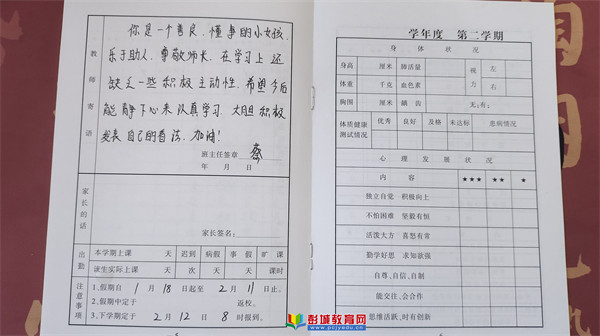 教师寄语
你是一个善良、懂事的小女孩,
乐于助人,尊敬师长,在学习上还
缺乏一些积极主动性,希望今后
能静下心来认真学习,大胆积极
发表自己的看法。加油!
班主任签章 蔡
年 月 日
家长的话
家长签名:
出勤
本学期上课 天 迟到 病假 事假 旷课
该生实际上课 天 次 天 天 课时
注意事项
1.假期自 1 月 18 日起至 2 月 11 日止。
2.假期中定于 返校。
3.下学期定于 2 月 12 日 8 时报到。
学年度 第二学期
身体状况
身高 厘米 肺活量 视力 左
体重 千克 血色素 右
胸围 厘米 龋齿 无;有:
体质健康测试情况 优秀 良好 及格 未达标 患病情况
心理发展状况
内容 ★★★ ★★ ★
独立自觉 积极向上
不怕困难 坚毅有恒
活泼大方 喜怒有常
勤学好思 求知欲强
自尊、自信、自制
能交往、会合作
思维活跃、时有创新
彭城教育网
www.pcjyedu.cn